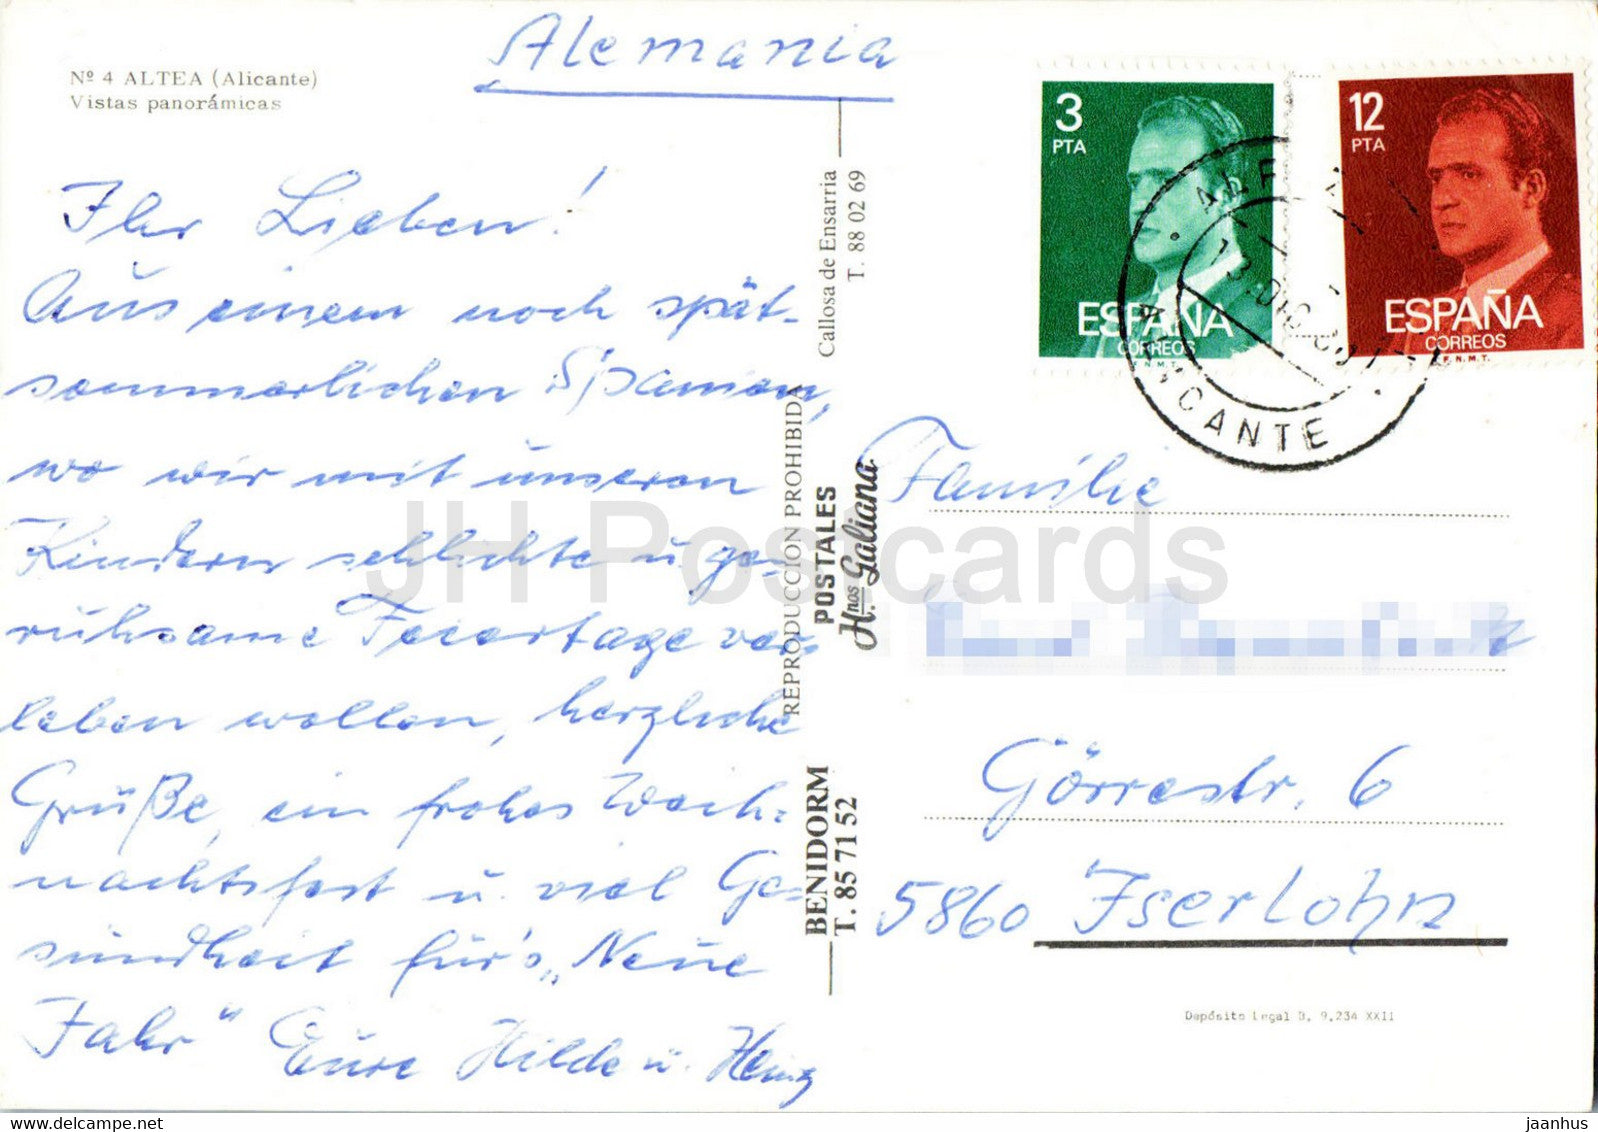 Alemania
Nº 4 ALTEA (Alicante)
Vistas panorámicas
Ihr Lieben!
Aus einem noch spät-
sommerlichen Spanien,
wo wir mit unseren
Kindern schlichte u. ge-
ruhsame Feiertage ver-
leben wollen, herzliche
Grüße, ein frohes Weih-
nachtsfest u. viel Ge-
sundheit für's „Neue
Jahr" Eure Hilde u. Heinz
Callosa de Ensarria
T. 88 02 69
REPRODUCCION PROHIBIDA
POSTALES
Hnos. Galiana
BENIDORM
T. 85 71 52
3
PTA
ESPAÑA
CORREOS
F.N.M.T.
12
PTA
ESPAÑA
CORREOS
F.N.M.T.
ALICANTE
Familie
Görresstr. 6
5860 Iserlohn
Depósito Legal B. 9.234 XXII
JH Postcards
jaanhus